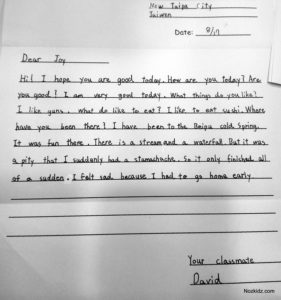 New Taipei City
Taiwan
Date: 8/17
Dear Joy
Hi! I hope you are good today. How are you today? Are
you good? I am very good today. What things do you like?
I like guns. What do like to eat? I like to eat sushi. Where
have you been there? I have been to the Beipu cold spring.
It was fun there. There is a stream and a waterfall. But it was
a pity that I suddenly had a stamachache. So it only finished all
of a sudden. I felt sad because I had to go home early
Your classmate
David
Nozkidz.com